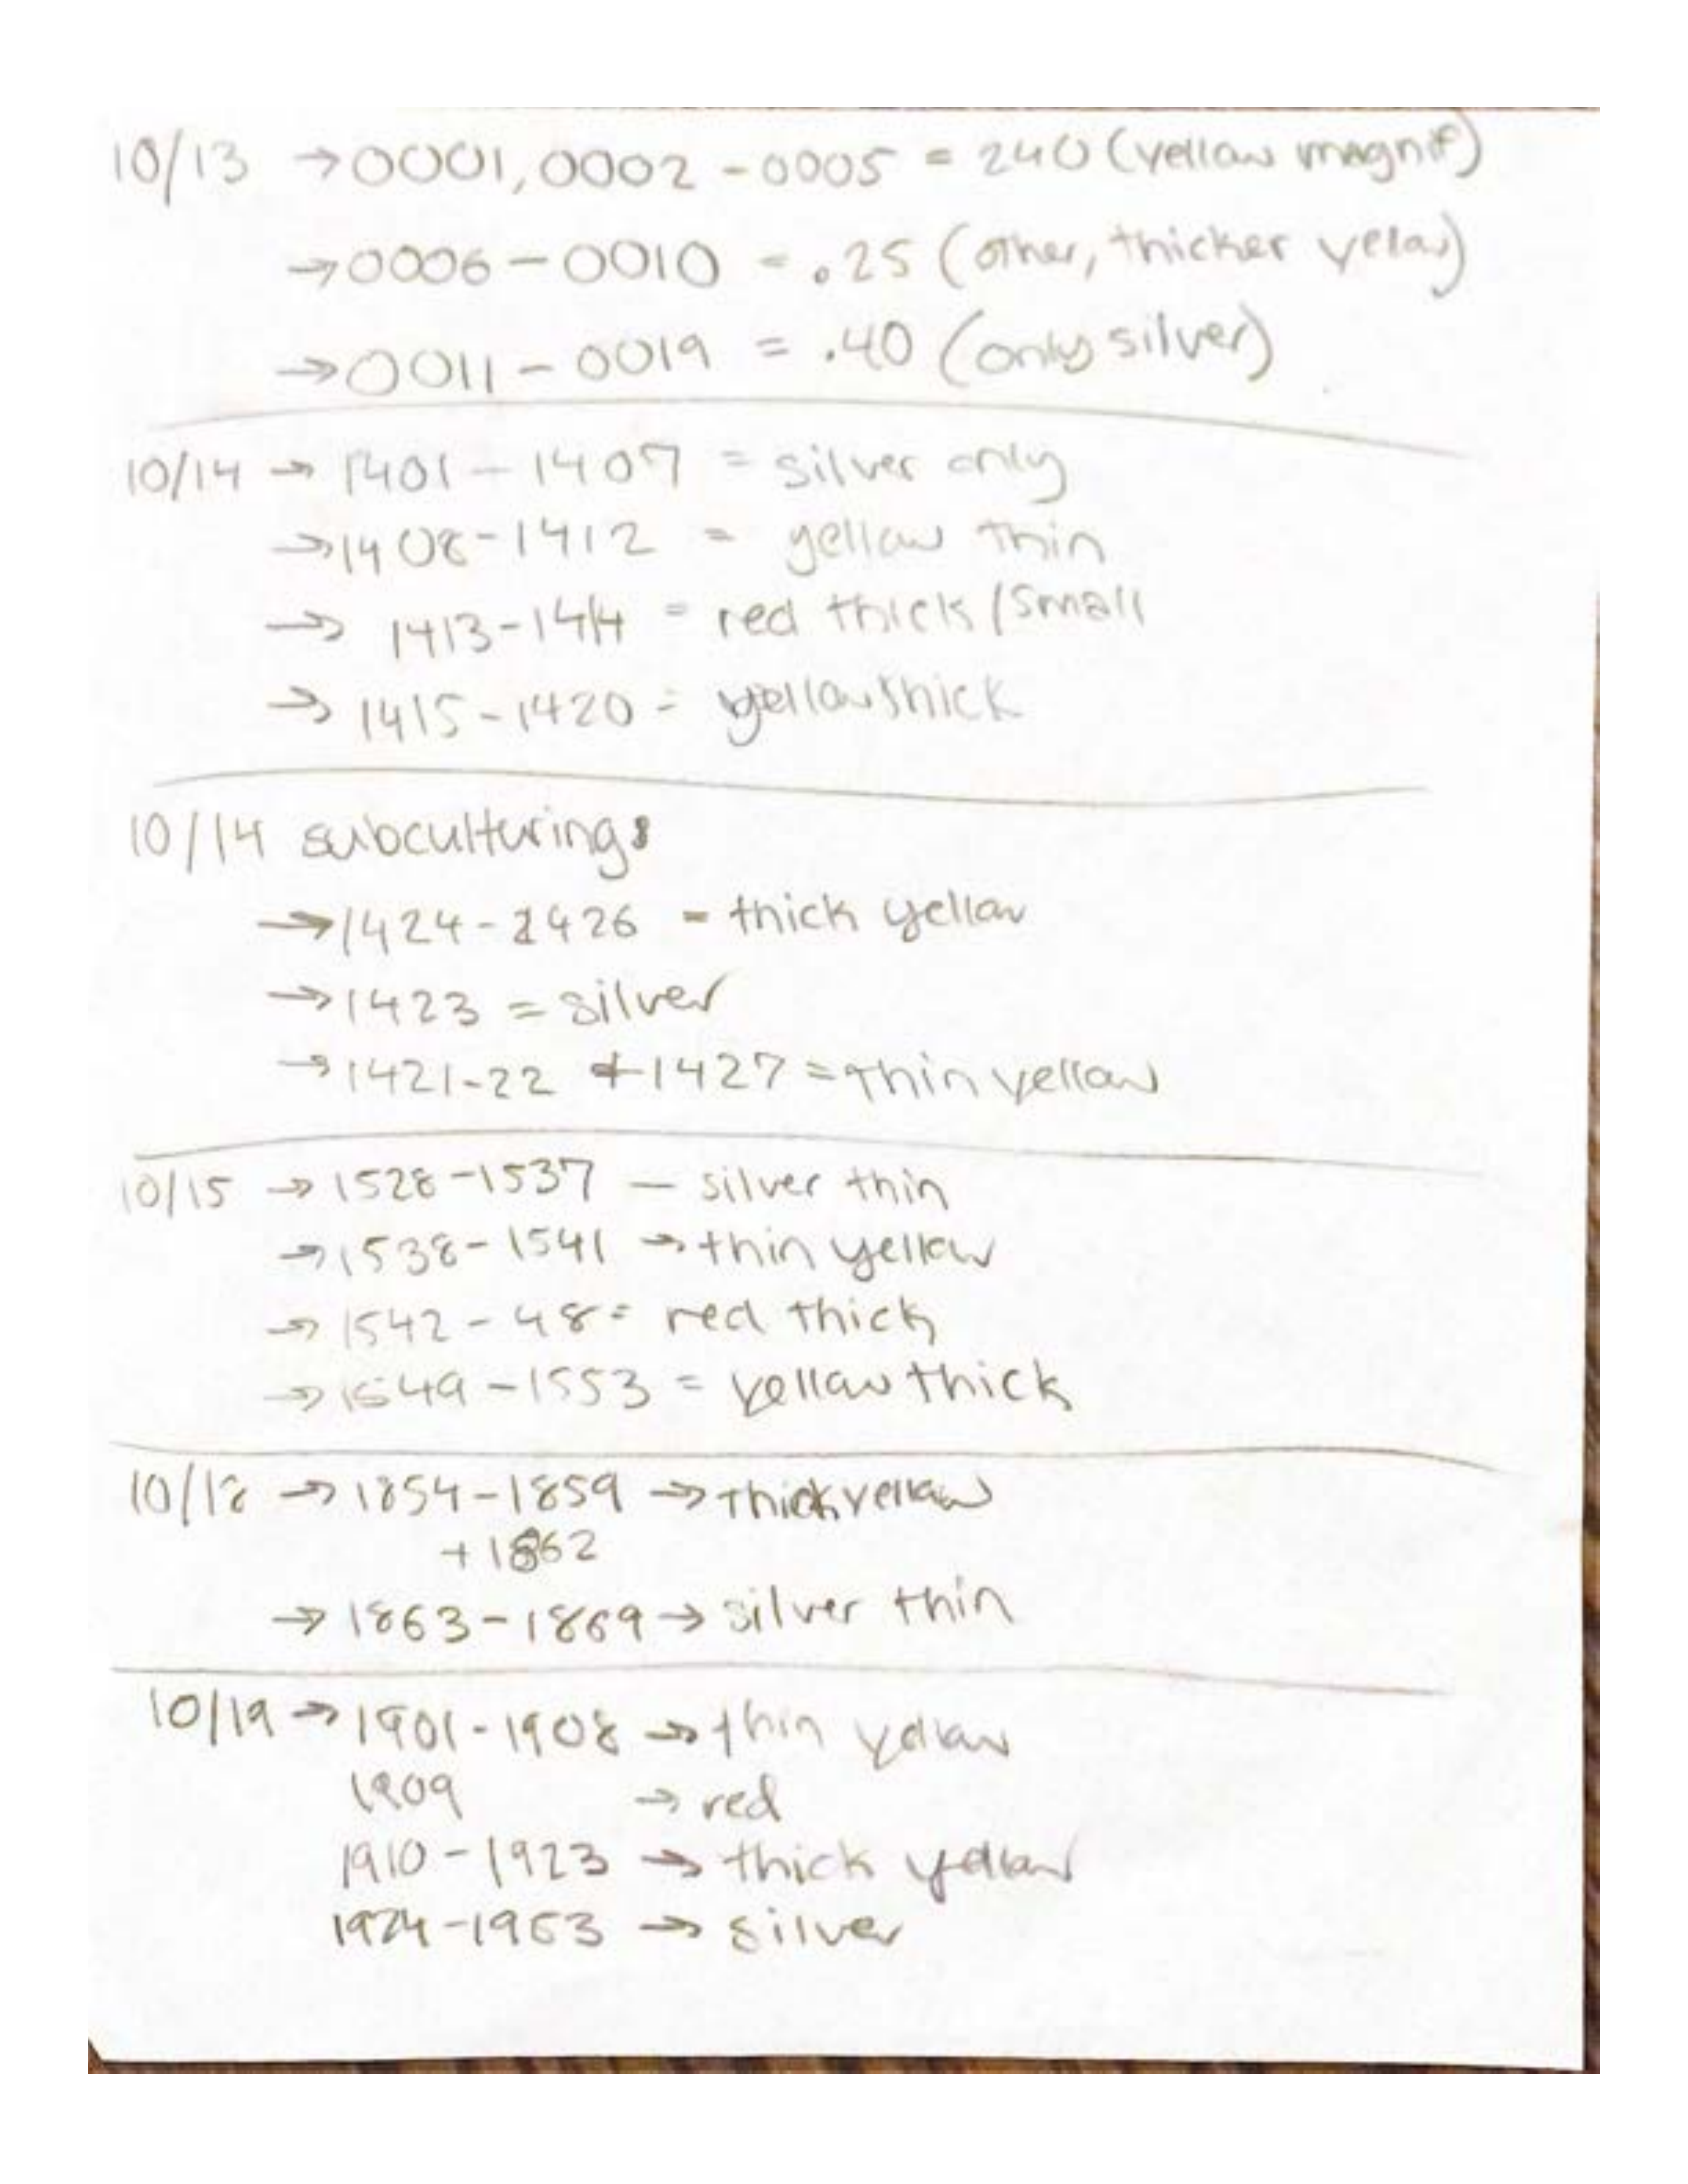 10/13 →0001, 0002 - 0005 = 240 (yellow magnif)
→0006 - 0010 = .25 (other, thicker yelow)
→0011 - 0019 = .40 (only silver)
10/14 → 1401 - 1407 = silver only
→1408-1412 = yellow thin
→ 1413-1414 = red thick/small
→ 1415-1420 = yellow thick
10/14 subculturing:
→1424-1426 = thick yellow
→1423 = silver
→1421-22 +1427 = thin yellow
10/15 → 1528-1537 — silver thin
→1538-1541 → thin yellow
→ 1542-48 = red thick
→1549-1553 = yellow thick
10/18 → 1854-1859 → thick yellow
+ 1862
→ 1863-1869 → silver thin
10/19 → 1901-1908 → thin yellow
1909 → red
1910-1923 → thick yellow
1924-1953 → silver